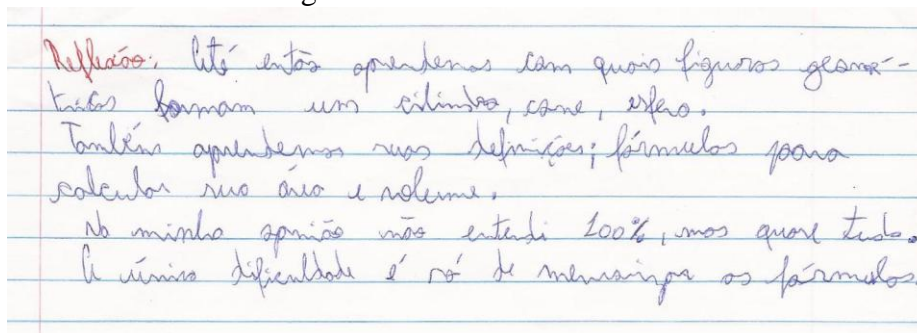 Reflexão: Até então aprendemos com quais figuras geomé-
tricas formam um cilindro, cone, esfera.
Também aprendemos suas definições; fórmulas para
calcular sua área e volume.
Na minha opinião não entendi 100%, mas quase tudo.
A única dificuldade é só de memorizar as fórmulas.